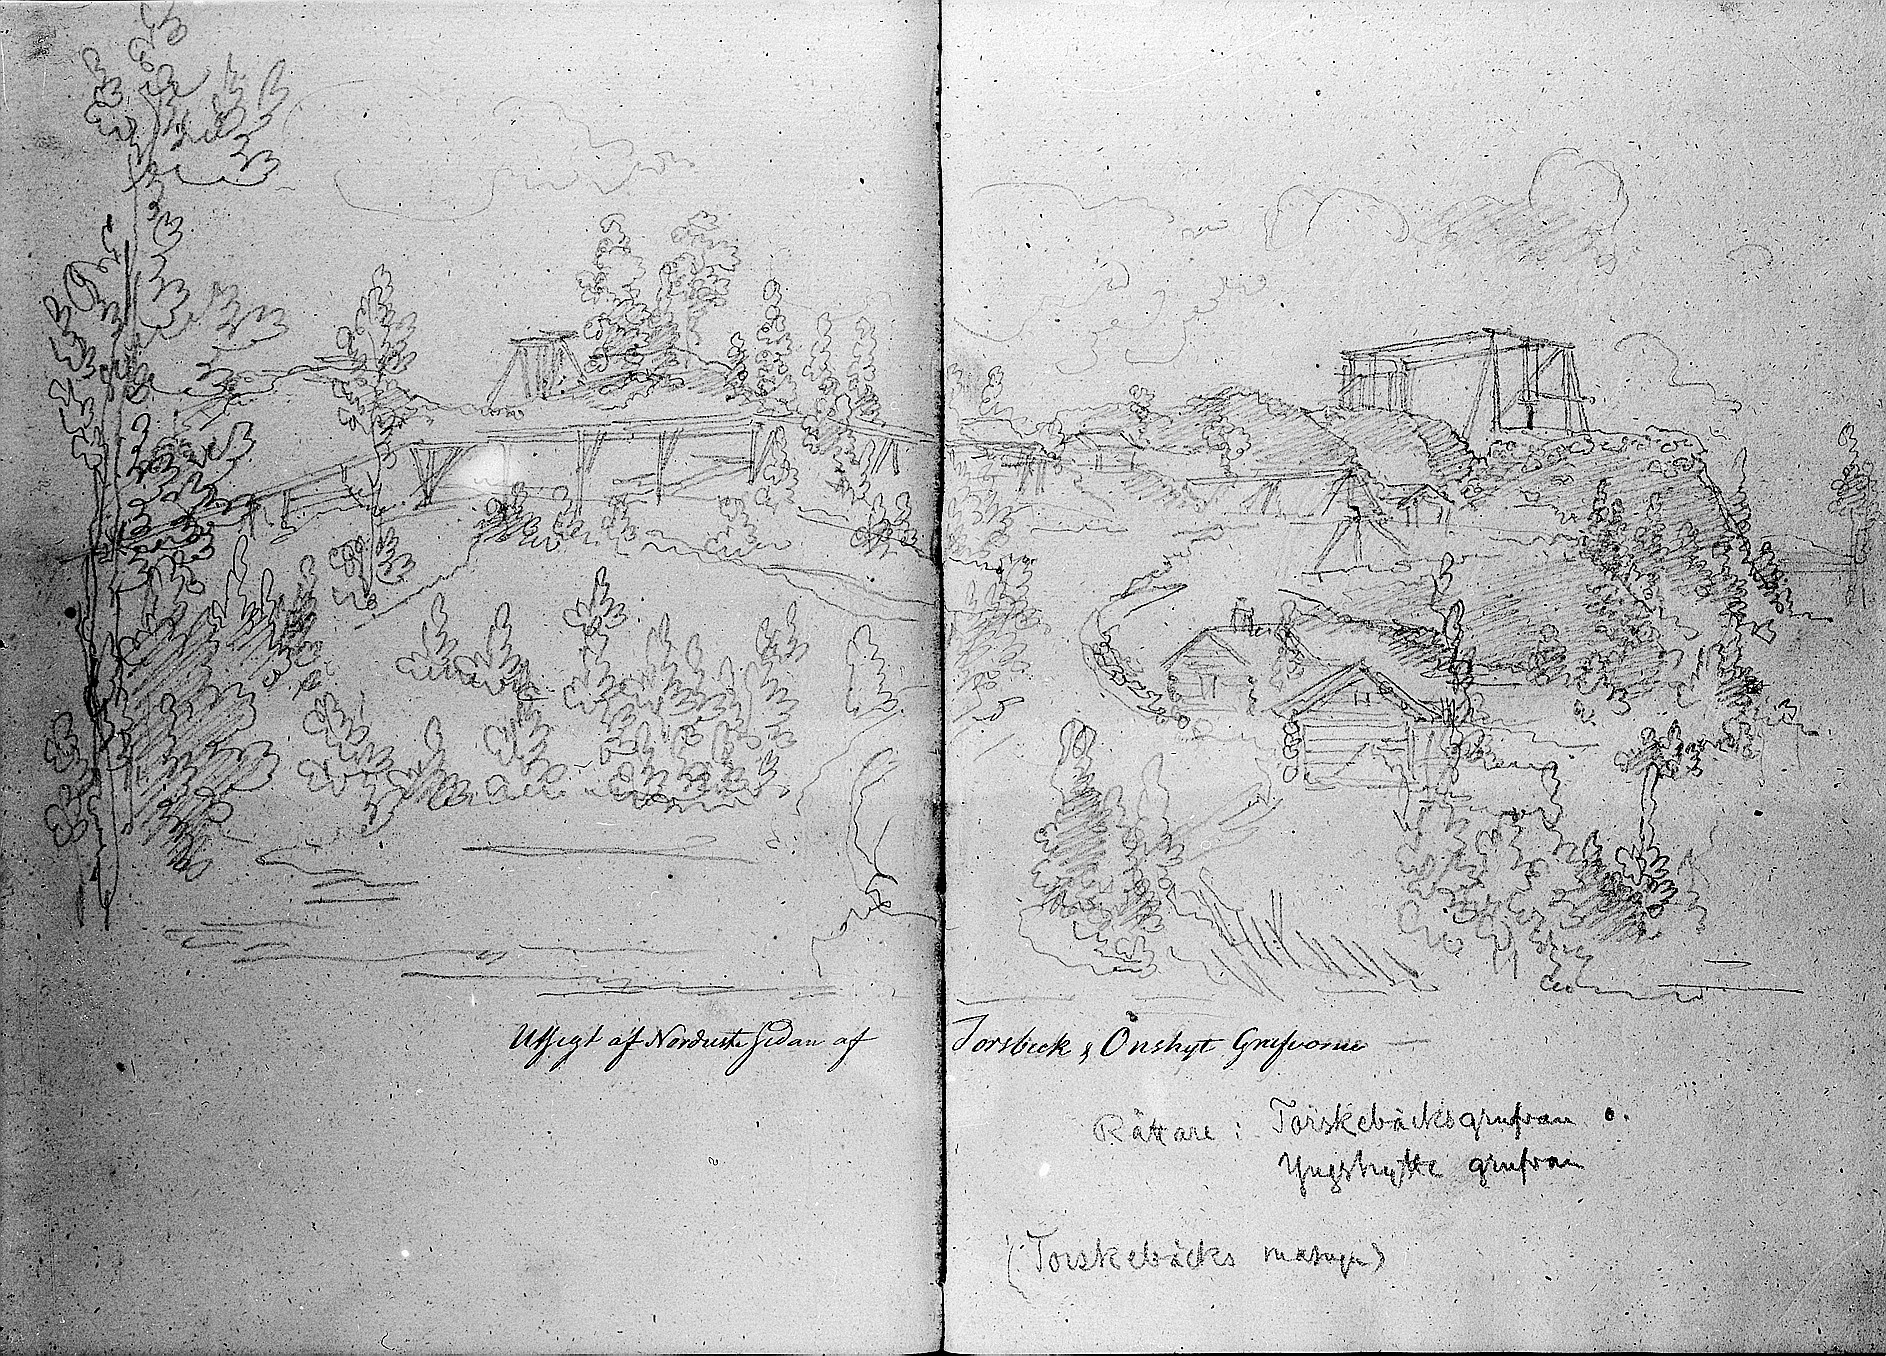 Utsigt af Norduste Sidan af Torsbeck & Onshyt Grufvorne
Rättare: Torskebäcksgrufvan o.
Yngshytte grufvan
(Torskebäcks